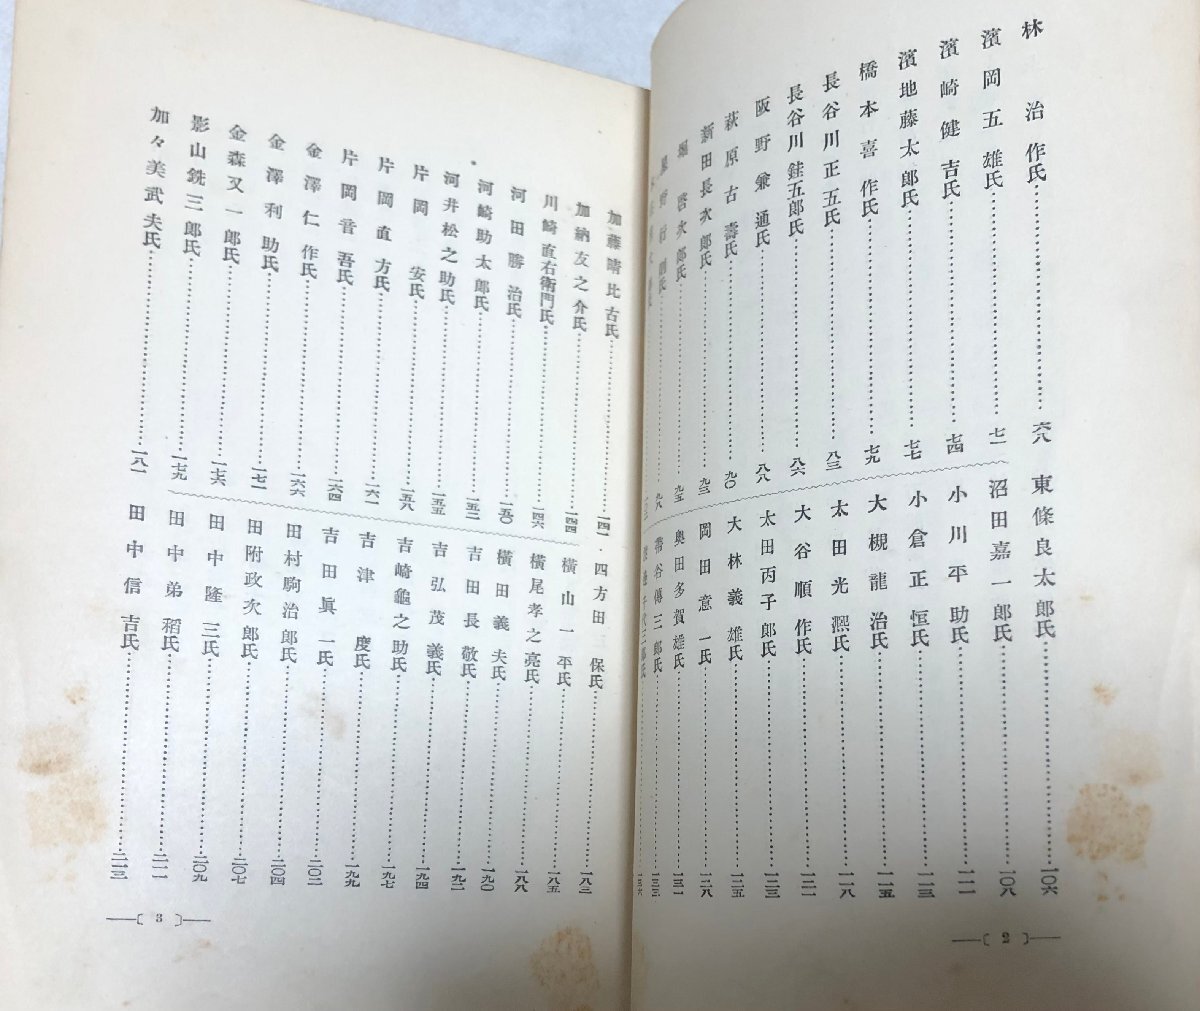 林治作氏…………六八
濱岡五雄氏…………七一
濱崎健吉氏…………七四
濱地藤太郎氏…………七七
橋本喜作氏…………七九
長谷川正五氏…………八三
長谷川銈五郎氏…………八六
阪野兼通氏…………八八
萩原古壽氏…………九〇
新田長次郎氏…………九三
堀啓次郎氏…………九五
星野行則氏…………九八
東條良太郎氏…………一〇六
沼田嘉一郎氏…………一〇八
小川平助氏…………一一一
小倉正恒氏…………一一三
大槻龍治氏…………一一五
太田光凞氏…………一一八
大谷順作氏…………一二一
太田丙子郎氏…………一二三
大林義雄氏…………一二五
岡田意一氏…………一二八
奥田多賀雄氏…………一三一
帶谷傳三郎氏…………一三三
〔2〕
加藤晴比古氏…………一四一
加納友之介氏…………一四四
川崎直右衛門氏…………一四六
河田勝治氏…………一五〇
河崎助太郎氏…………一五二
河井松之助氏…………一五五
片岡安氏…………一五八
片岡直方氏…………一六一
片岡音吾氏…………一六四
金澤仁作氏…………一六六
金澤利助氏…………一七一
金森又一郎氏…………一七六
影山銑三郎氏…………一七九
加々美武夫氏…………一八一
四方田保氏…………一八三
横山一平氏…………一八五
横尾孝之亮氏…………一八八
横田義夫氏…………一九〇
吉田長敬氏…………一九二
吉弘茂義氏…………一九四
吉崎龜之助氏…………一九七
吉津度氏…………一九九
吉田眞一氏…………二〇二
田村駒治郎氏…………二〇四
田附政次郎氏…………二〇七
田中隆三氏…………二〇九
田中弟稻氏…………二一一
田中信吉氏…………二一三
〔3〕